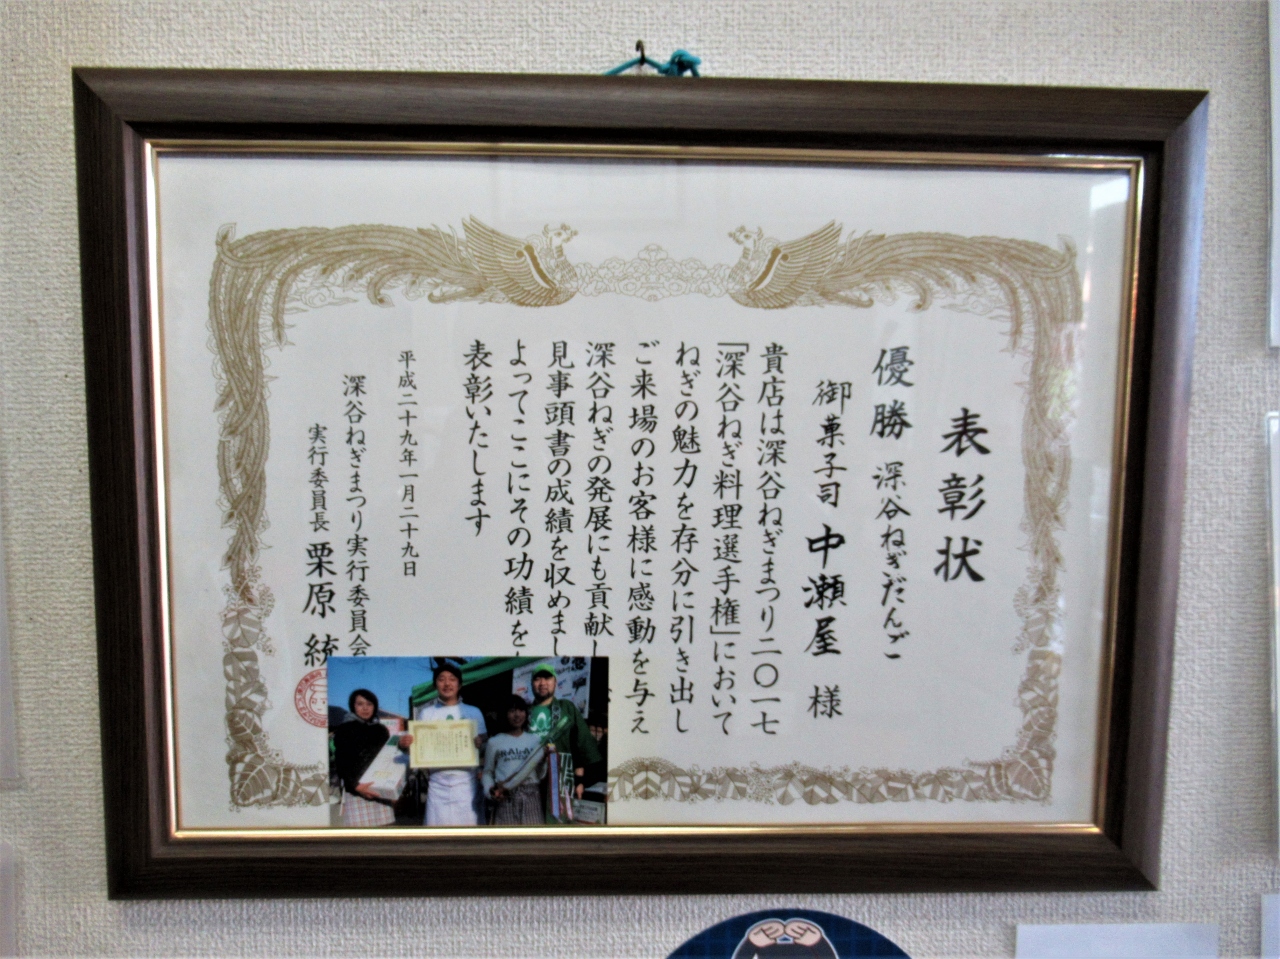 表彰状
優勝 深谷ねぎだんご
御菓子司 中瀬屋 様
貴店は深谷ねぎまつり二〇一七
「深谷ねぎ料理選手権」において
ねぎの魅力を存分に引き出し
ご来場のお客様に感動を与え
深谷ねぎの発展にも貢献し
見事頭書の成績を収めまし
よってここにその功績を
表彰いたします
平成二十九年一月二十九日
深谷ねぎまつり実行委員会
実行委員長 栗原 統